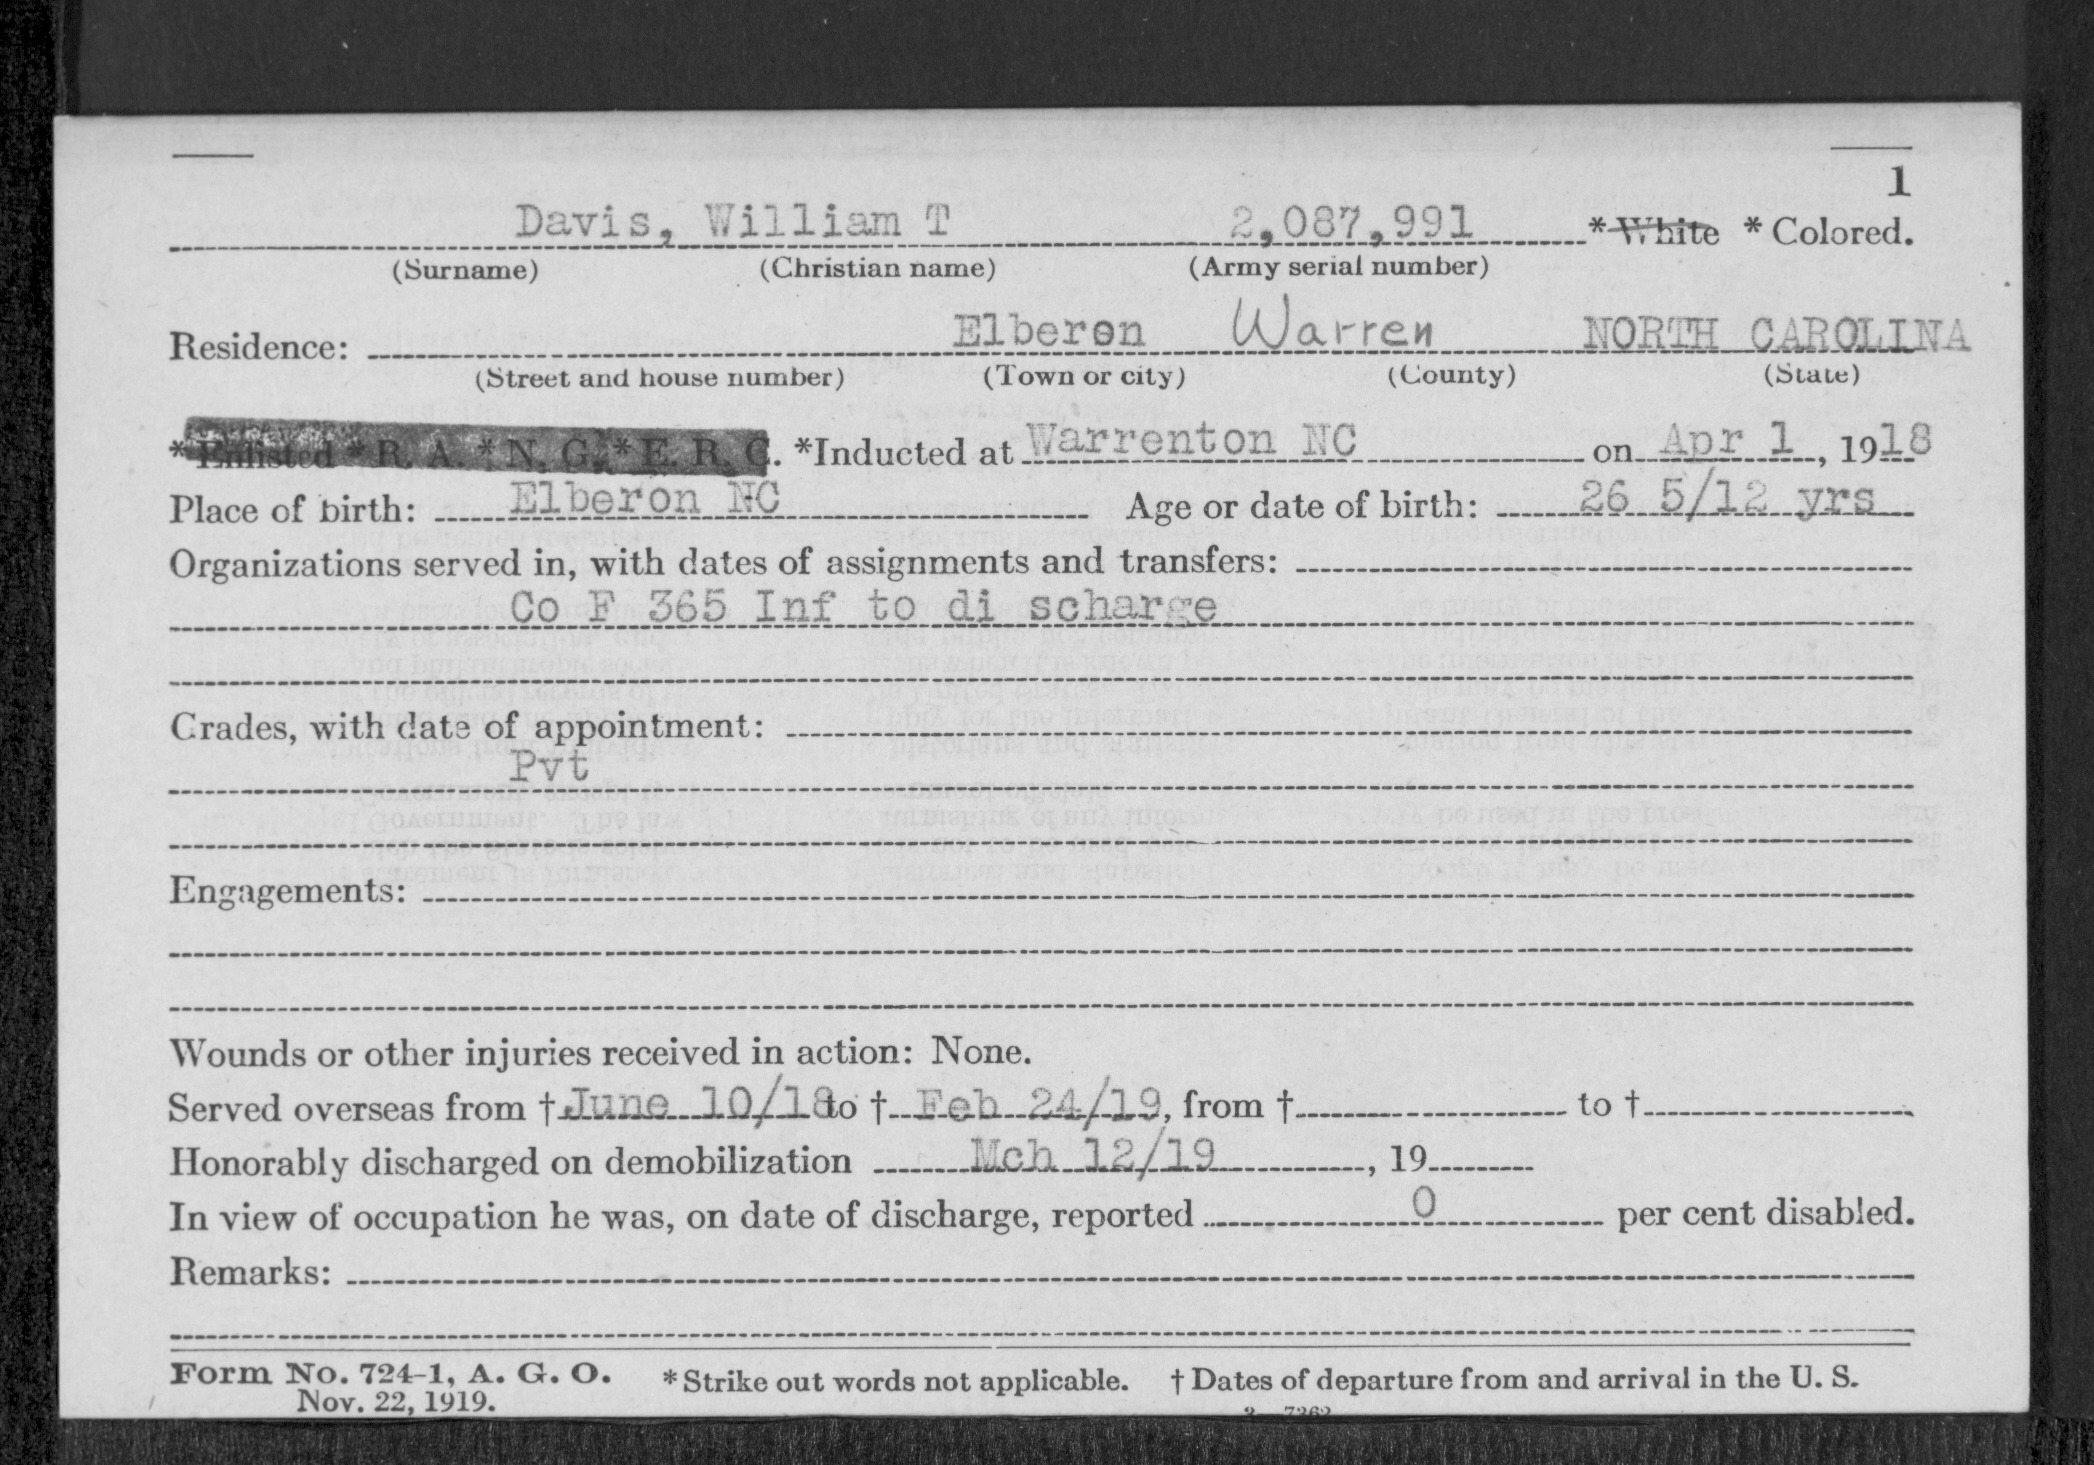 1
Davis, William T 2,087,991 *White * Colored.
(Surname) (Christian name) (Army serial number)
Residence: Elberon Warren NORTH CAROLINA
(Street and house number) (Town or city) (County) (State)
*Enlisted * R. A. * N. G. * E. R. C. *Inducted at Warrenton NC on Apr 1, 1918
Place of birth: Elberon NC Age or date of birth: 26 5/12 yrs
Organizations served in, with dates of assignments and transfers:
Co F 365 Inf to di scharge
Grades, with date of appointment:
Pvt
Engagements:
Wounds or other injuries received in action: None.
Served overseas from † June 10/18 to † Feb 24/19, from † to †
Honorably discharged on demobilization Mch 12/19, 19
In view of occupation he was, on date of discharge, reported 0 per cent disabled.
Remarks:
Form No. 724-1, A. G. O. * Strike out words not applicable. † Dates of departure from and arrival in the U. S.
Nov. 22, 1919.